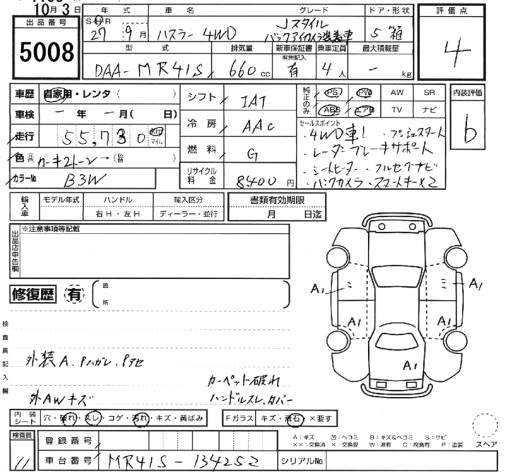 10月3日
出品番号
5008
年式
S・H・R
27年9月
車名
ハスラー 4WD
グレード
Jスタイル
バックアイカメラ装着車
ドア・形状
5 箱
評価点
4
型式
DAA-MR41S
排気量
660 cc
新車保証書
有無記入
有
乗車定員
4人
最大積載量
- kg
車歴 自家用・レンタ( )
車検 - 年 - 月(日)
走行 55,730 km マイル
色
カーキ2トーン→
カラーNo B3W
シフト IAT
冷房 AAC
燃料 G
リサイクル料金 8400円
純正のみ
PS PW AW SR
ABS エアB TV ナビ
セールスポイント
・4WD車! ・プッシュスタート
・レーダーブレーキサポート
・シートヒーター ・フルセグナビ
・バックカメラ ・スマートキー×2
内装評価
b
輸入車
モデル年式
ハンドル
右H・左H
輸入区分
ディーラー・並行
書類有効期限
月 日迄
出品店申告欄
※注意事項等記載
修復歴 有
箇所
検査員記入欄
外装A、
外AWキズ
カーペット破れ
ハンドルスレ、カバー
A1
A1
A1
A1
A1
内装シート 穴・破れ・スレ・コゲ・汚れ・キズ・黄ばみ
Fガラス キズ・飛石・×要す
スペア
A:キズ 凹:ヘコミ B:キズ&ヘコミ S:サビ
××:交換済 ×:交換跡 W:波有 C:腐食有 P:塗装
検査員
登録番号
車台番号 MR41S-134252
シリアルNo